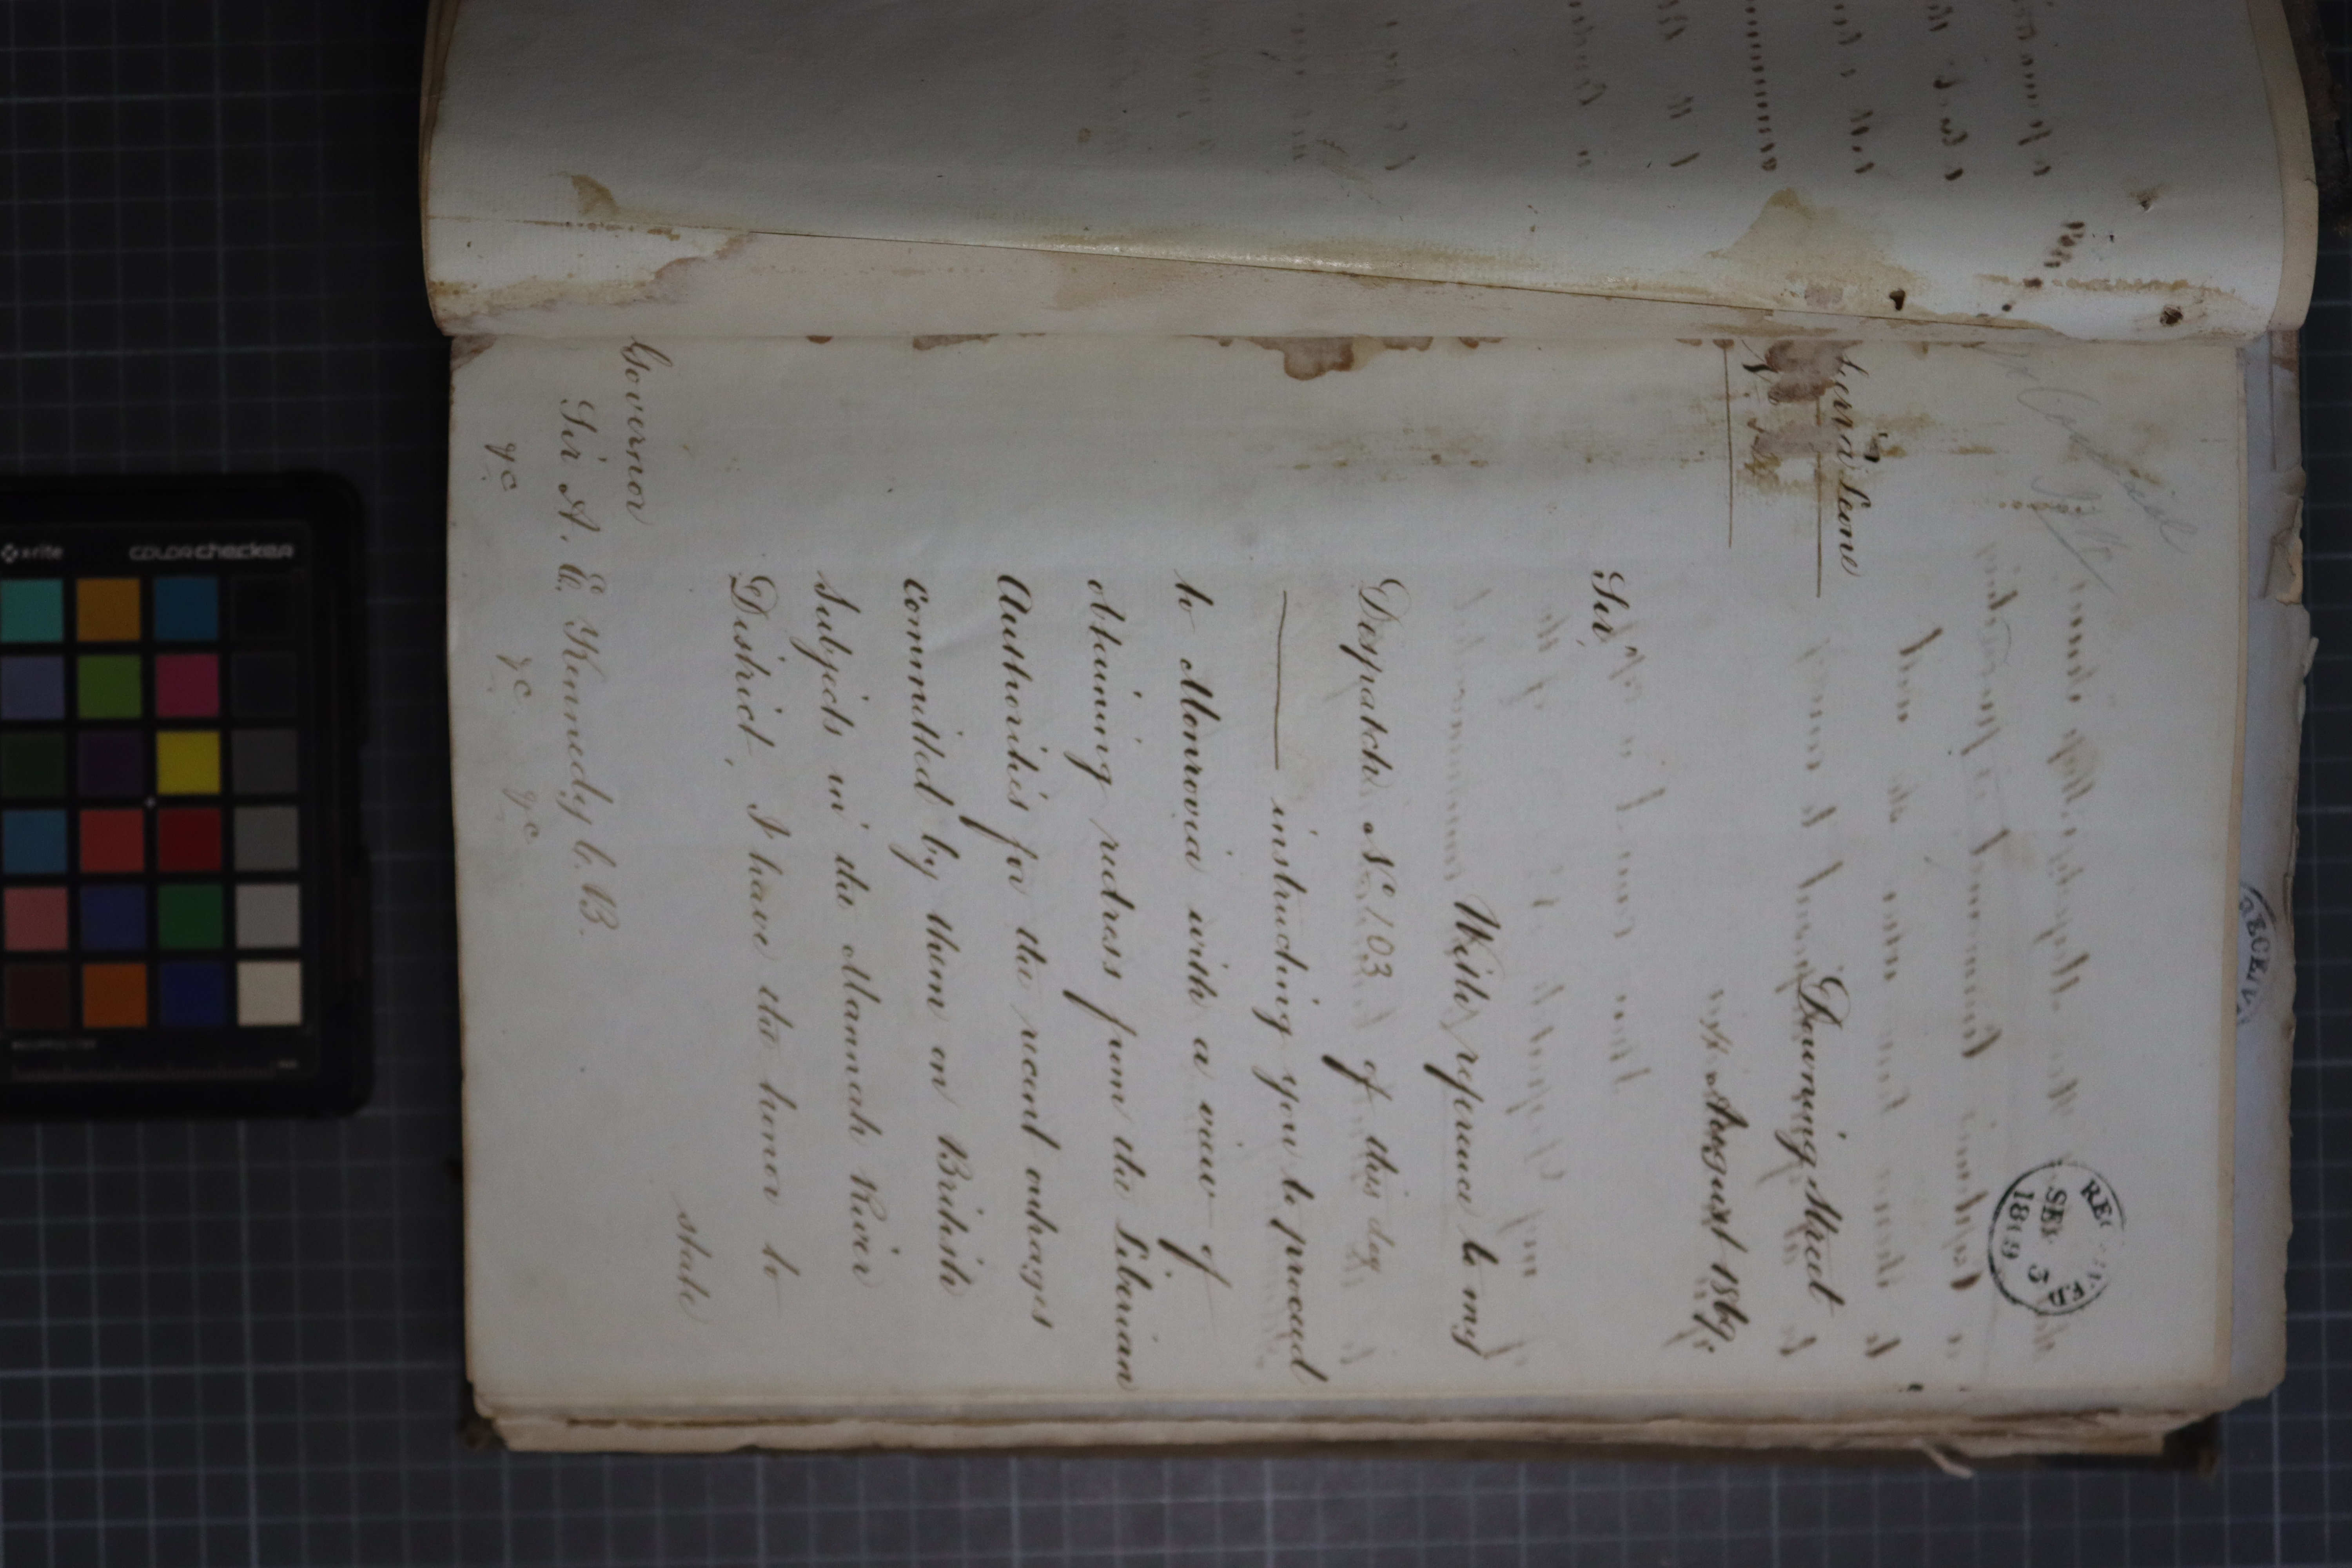 RECEIVED
SEP 3
1869
Sierra Leone
No
Downing Street
August 1869.
Sir,
With reference to my
Despatch No. 103 of this day
instructing you to proceed
to Monrovia with a view of
obtaining redress from the Liberian
Authorities for the recent outrages
Committed by them on British
Subjects in the Mannah River
District, I have the honor to
state
Governor
Sir A. E. Kennedy C.B.
&c &c &c
xrite colorchecker